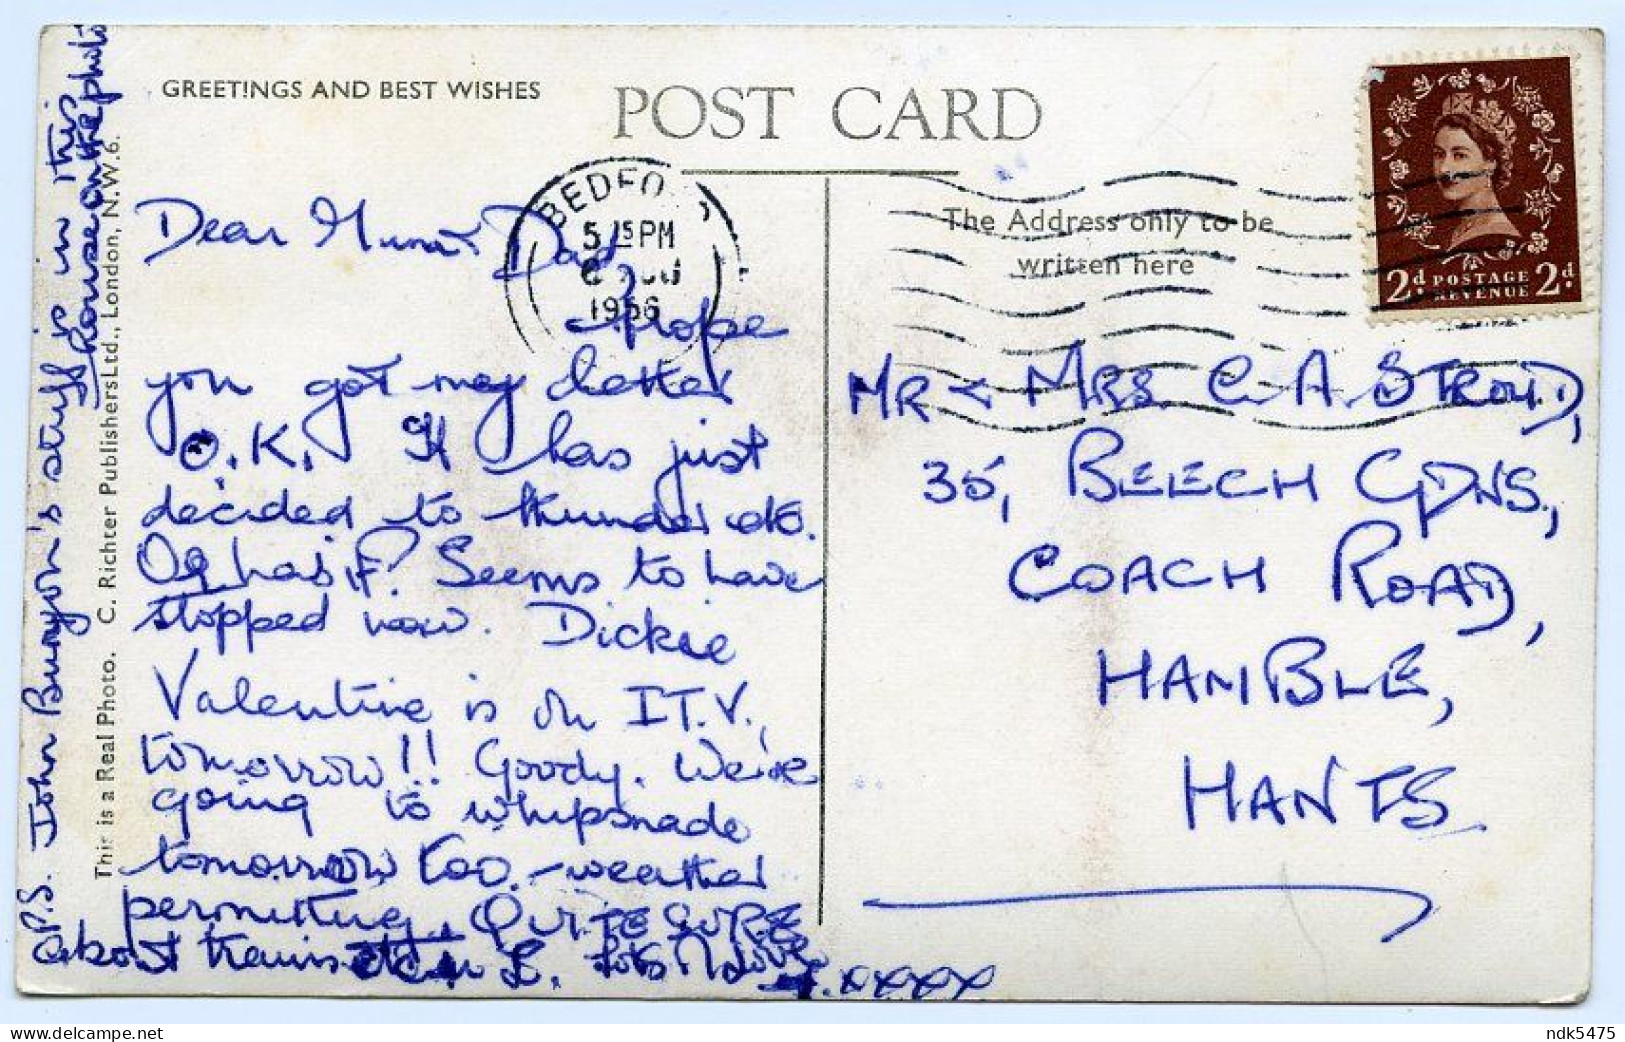 GREETINGS AND BEST WISHES
POST CARD
The Address only to be
written here
BEDFO
5 15 PM
1956
2d. POSTAGE 2d.
REVENUE
Dear Mum & Dad
I hope
you got my letter
O.K. It has just
decided to thunder etc.
Og has it? Seems to have
stopped now. Dickie
Valentine is on I.T.V.,
tomorrow!! Goody. We're
going to Whipsnade
tomorrow too - weather
permitting. QUITE SURE
about trains L. Lots Love
xxxxx
MR & MRS. C. A. STROUD,
35, BEECH GDNS.,
COACH ROAD,
HAMBLE,
HANTS
P.S. John Bunyon's stuff is in this
house on the photo
This is a Real Photo. C. Richter Publishers Ltd., London, N.W.6.
ndk5475